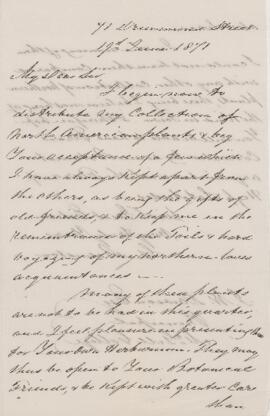 71 Drummond Street
19th June 1871
My Dear Sir
I begin now to
distribute my Collection of
North American plants & beg
Your acceptance of a few which
I have always kept apart from
the others, as being the gifts of
old friends, & to keep me in the
remembrance of the Toils & hard
voyaging of my northern
acquaintances —
Many of these plants
are not to be had in this quarter,
and I feel pleasure in presenting them
for Your own Herbarium. They may
thus be open to Your Botanical
Friends, & be kept with greater Care
than